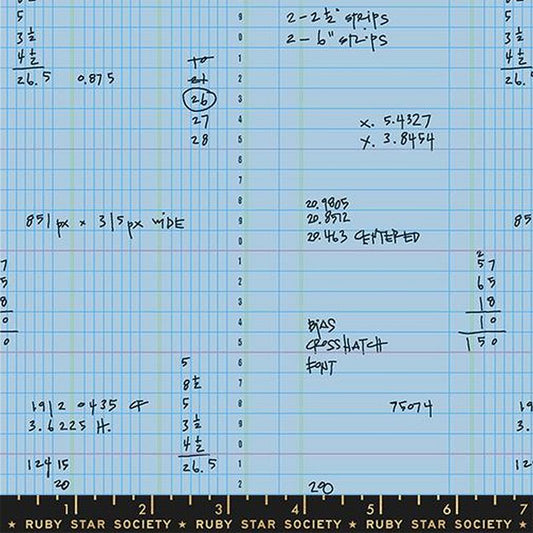 5
3 ½
4 ½
26.5 0.875
10
21
26
27
28
2 - 2 ½" strips
2 - 6" strips
x. 5.4327
y. 3.8454
26.
851 px x 315 px WIDE
20.9805
20.8512
20.463 CENTERED
85
7
5
8
0
0
2
57
65
18
10
150
BIAS
CROSSHATCH
FONT
5
8 ½
5
3 ½
4 ½
26.5
1912 0435 CF
3.6225 H.
12415
20
75074
290
19
9.
12
9
0
1
2
3
4
5
6
7
8
9
0
1
2
3
4
5
6
7
8
9
0
1
2
1 2 3 4 5 6 7
★ RUBY STAR SOCIETY ★ RUBY STAR SOCIETY ★ RUBY STAR SOCIETY ★